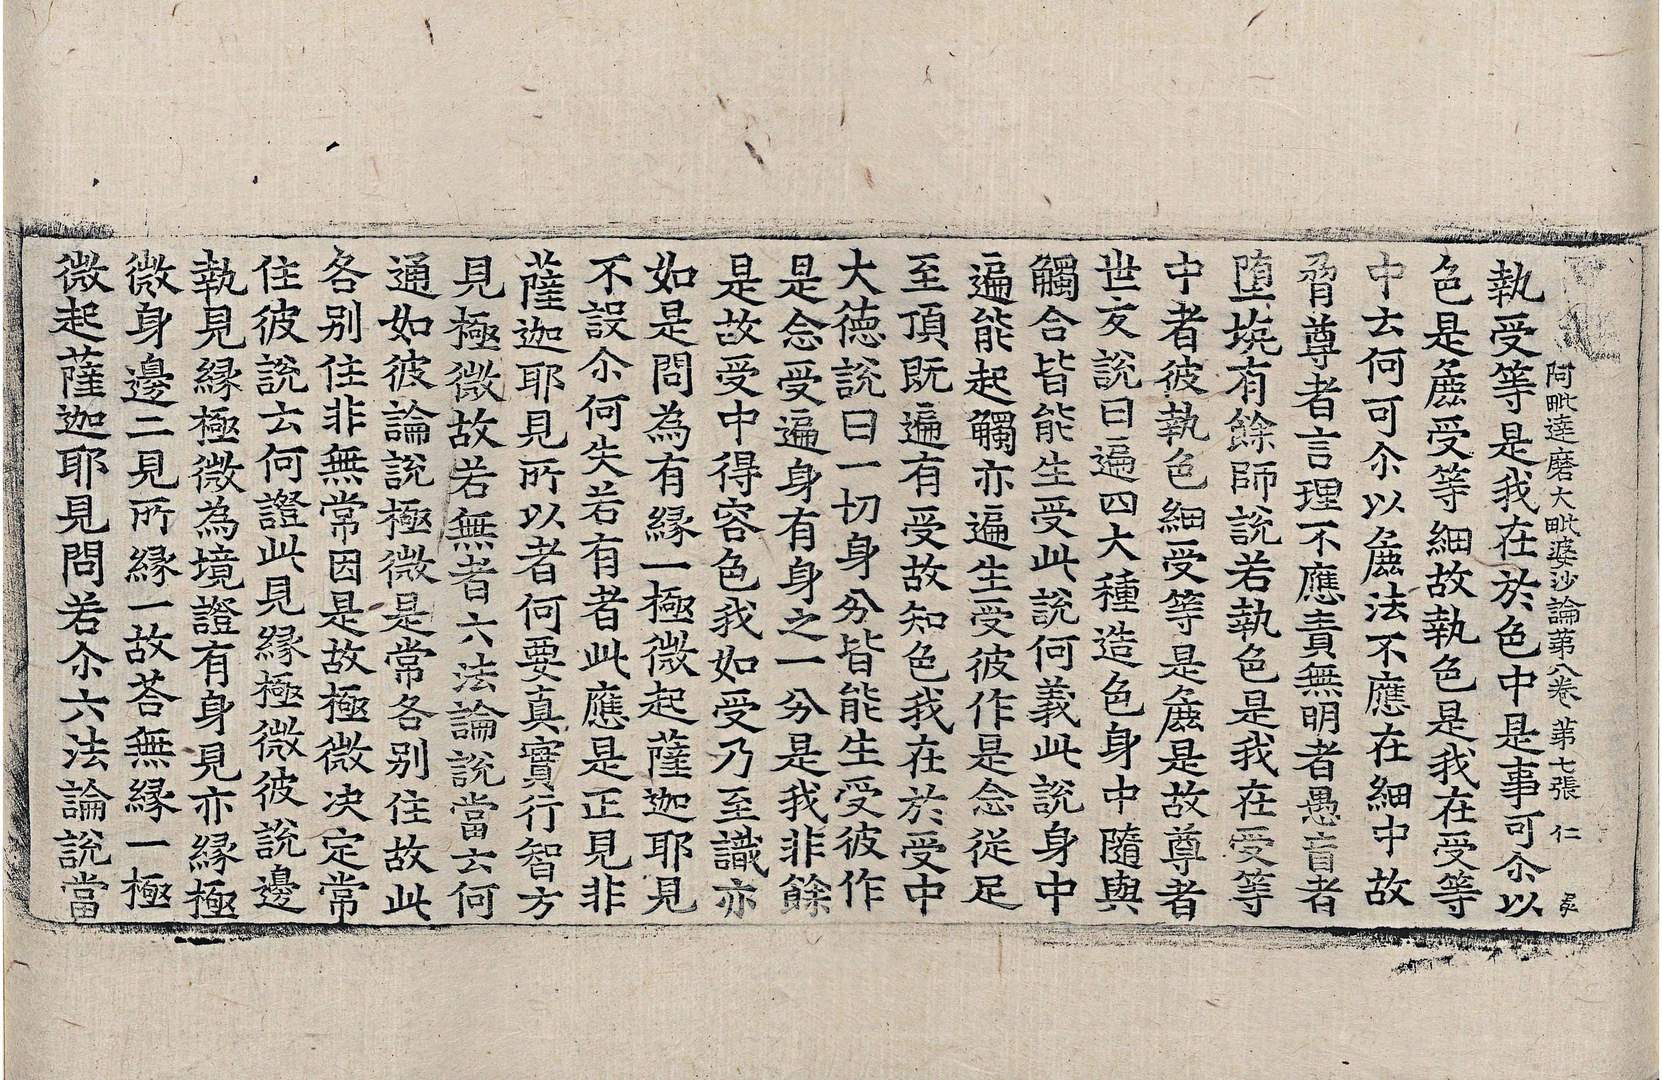 阿毗達磨大毗婆沙論第八卷 第七張 仁
執受等是我在於色中是事可尒以
色是麁受等細故執色是我在受等
中去何可尒以麁法不應在細中故
脅尊者言理不應責無明者愚盲者
墮坑有餘師說若執色是我在受等
中者彼執色細受等是麁是故尊者
世友說曰遍四大種造色身中隨與
觸合皆能生受此說何義此說身中
遍能起觸亦遍生受彼作是念從足
至頂既遍有受故知色我在於受中
大德說曰一切身分皆能生受彼作
是念受遍身有身之一分是我非餘
是故受中得容色我如受乃至識亦
如是問為有緣一極微起薩迦耶見
不設尒何失若有者此應是正見非
薩迦耶見所以者何要真實行智方
見極微故若無者六法論說當云何
通如彼論說極微是常各別住故此
各別住非無常因是故極微決定常
住彼說云何證此見緣極微彼說邊
執見緣極微為境證有身見亦緣極
微身邊二見所緣一故荅無緣一極
微起薩迦耶見問若尒六法論說當